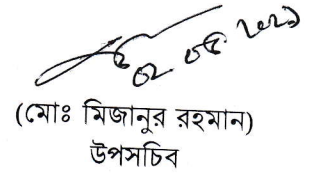 ০২ ০৫ ২০২১
(মোঃ মিজানুর রহমান)
উপসচিব